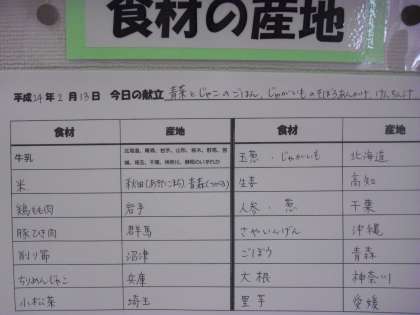 食材の産地
平成24年2月13日 今日の献立 青菜とじゃこのごはん、じゃがいものそぼろあんかけ、けんちん汁
食材 産地 食材 産地
牛乳 玉葱・じゃがいも 北海道
米 秋田(あきたこまち) 青森(つがる) 生姜 高知
鶏もも肉 岩手 人参・葱 千葉
豚ひき肉 群馬 さやいんげん 沖縄
削り節 沼津 ごぼう 青森
ちりめんじゃこ 兵庫 大根 神奈川
小松菜 埼玉 里芋 愛媛